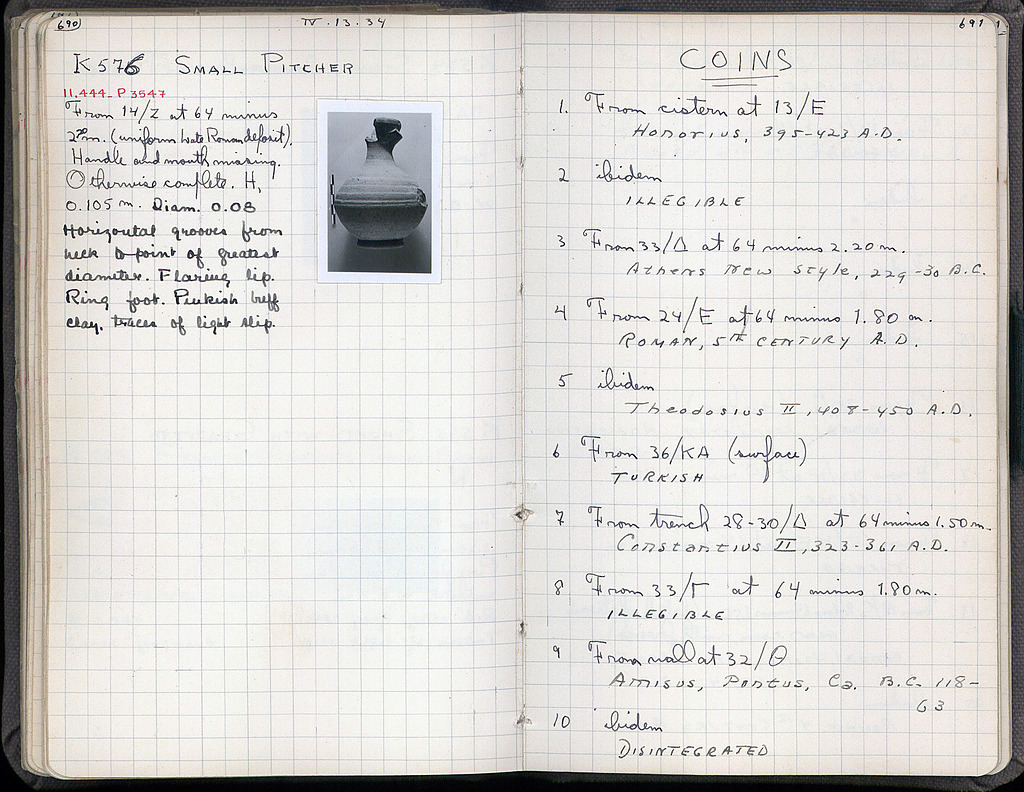 690
IV.13.34
K576 SMALL PITCHER
II.444_P 3547
From 14/Z at 64 minus
2.20m. (uniform Late Roman deposit).
Handle and mouth missing.
Otherwise complete. H,
0.105 m. Diam. 0.08
Horizontal grooves from
neck to point of greatest
diameter. Flaring lip.
Ring foot. Pinkish buff
clay, traces of light slip.
691
COINS
1. From cistern at 13/E
Honorius, 395-423 A.D.
2 ibidem
ILLEGIBLE
3 From 33/Δ at 64 minus 2.20 m.
Athens New Style, 229-30 B.C.
4 From 24/E at 64 minus 1.80 m.
ROMAN, 5TH CENTURY A.D.
5 ibidem
Theodosius II, 408-450 A.D.
6 From 36/KA (surface)
TURKISH
7 From trench 28-30/Δ at 64 minus 1.50 m.
Constantius II, 323-361 A.D.
8 From 33/Γ at 64 minus 1.80 m.
ILLEGIBLE
9 From wall at 32/Θ
Amisus, Pontus, Ca. B.C. 118-
63
10 ibidem
DISINTEGRATED